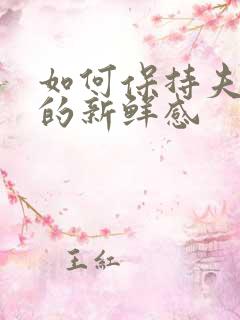 如何保持夫
的新鲜感
王紅